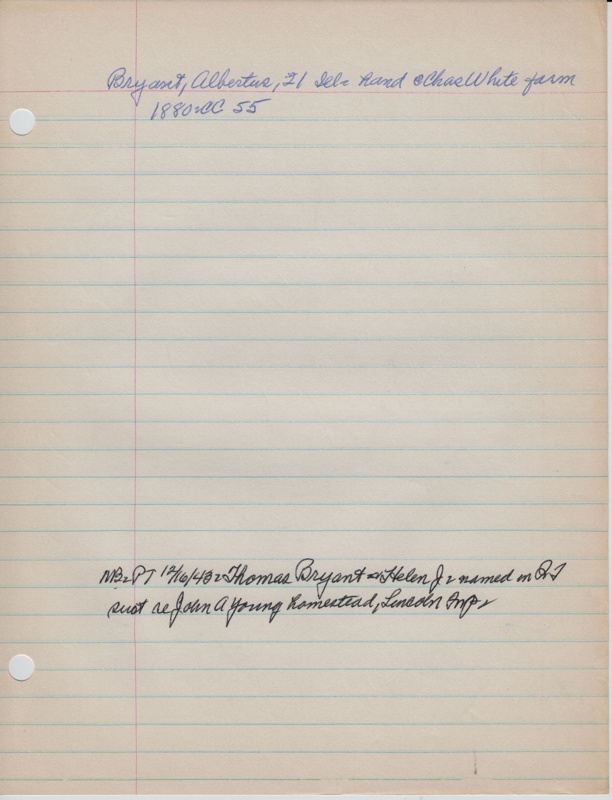 Bryant, Albertus, 21 Del= hand @ Chas White farm
1880=CC 55
NB=PT 12/16/43= Thomas Bryant & Helen J= named in QT
suit re John A Young homestead, Lincoln Twp=